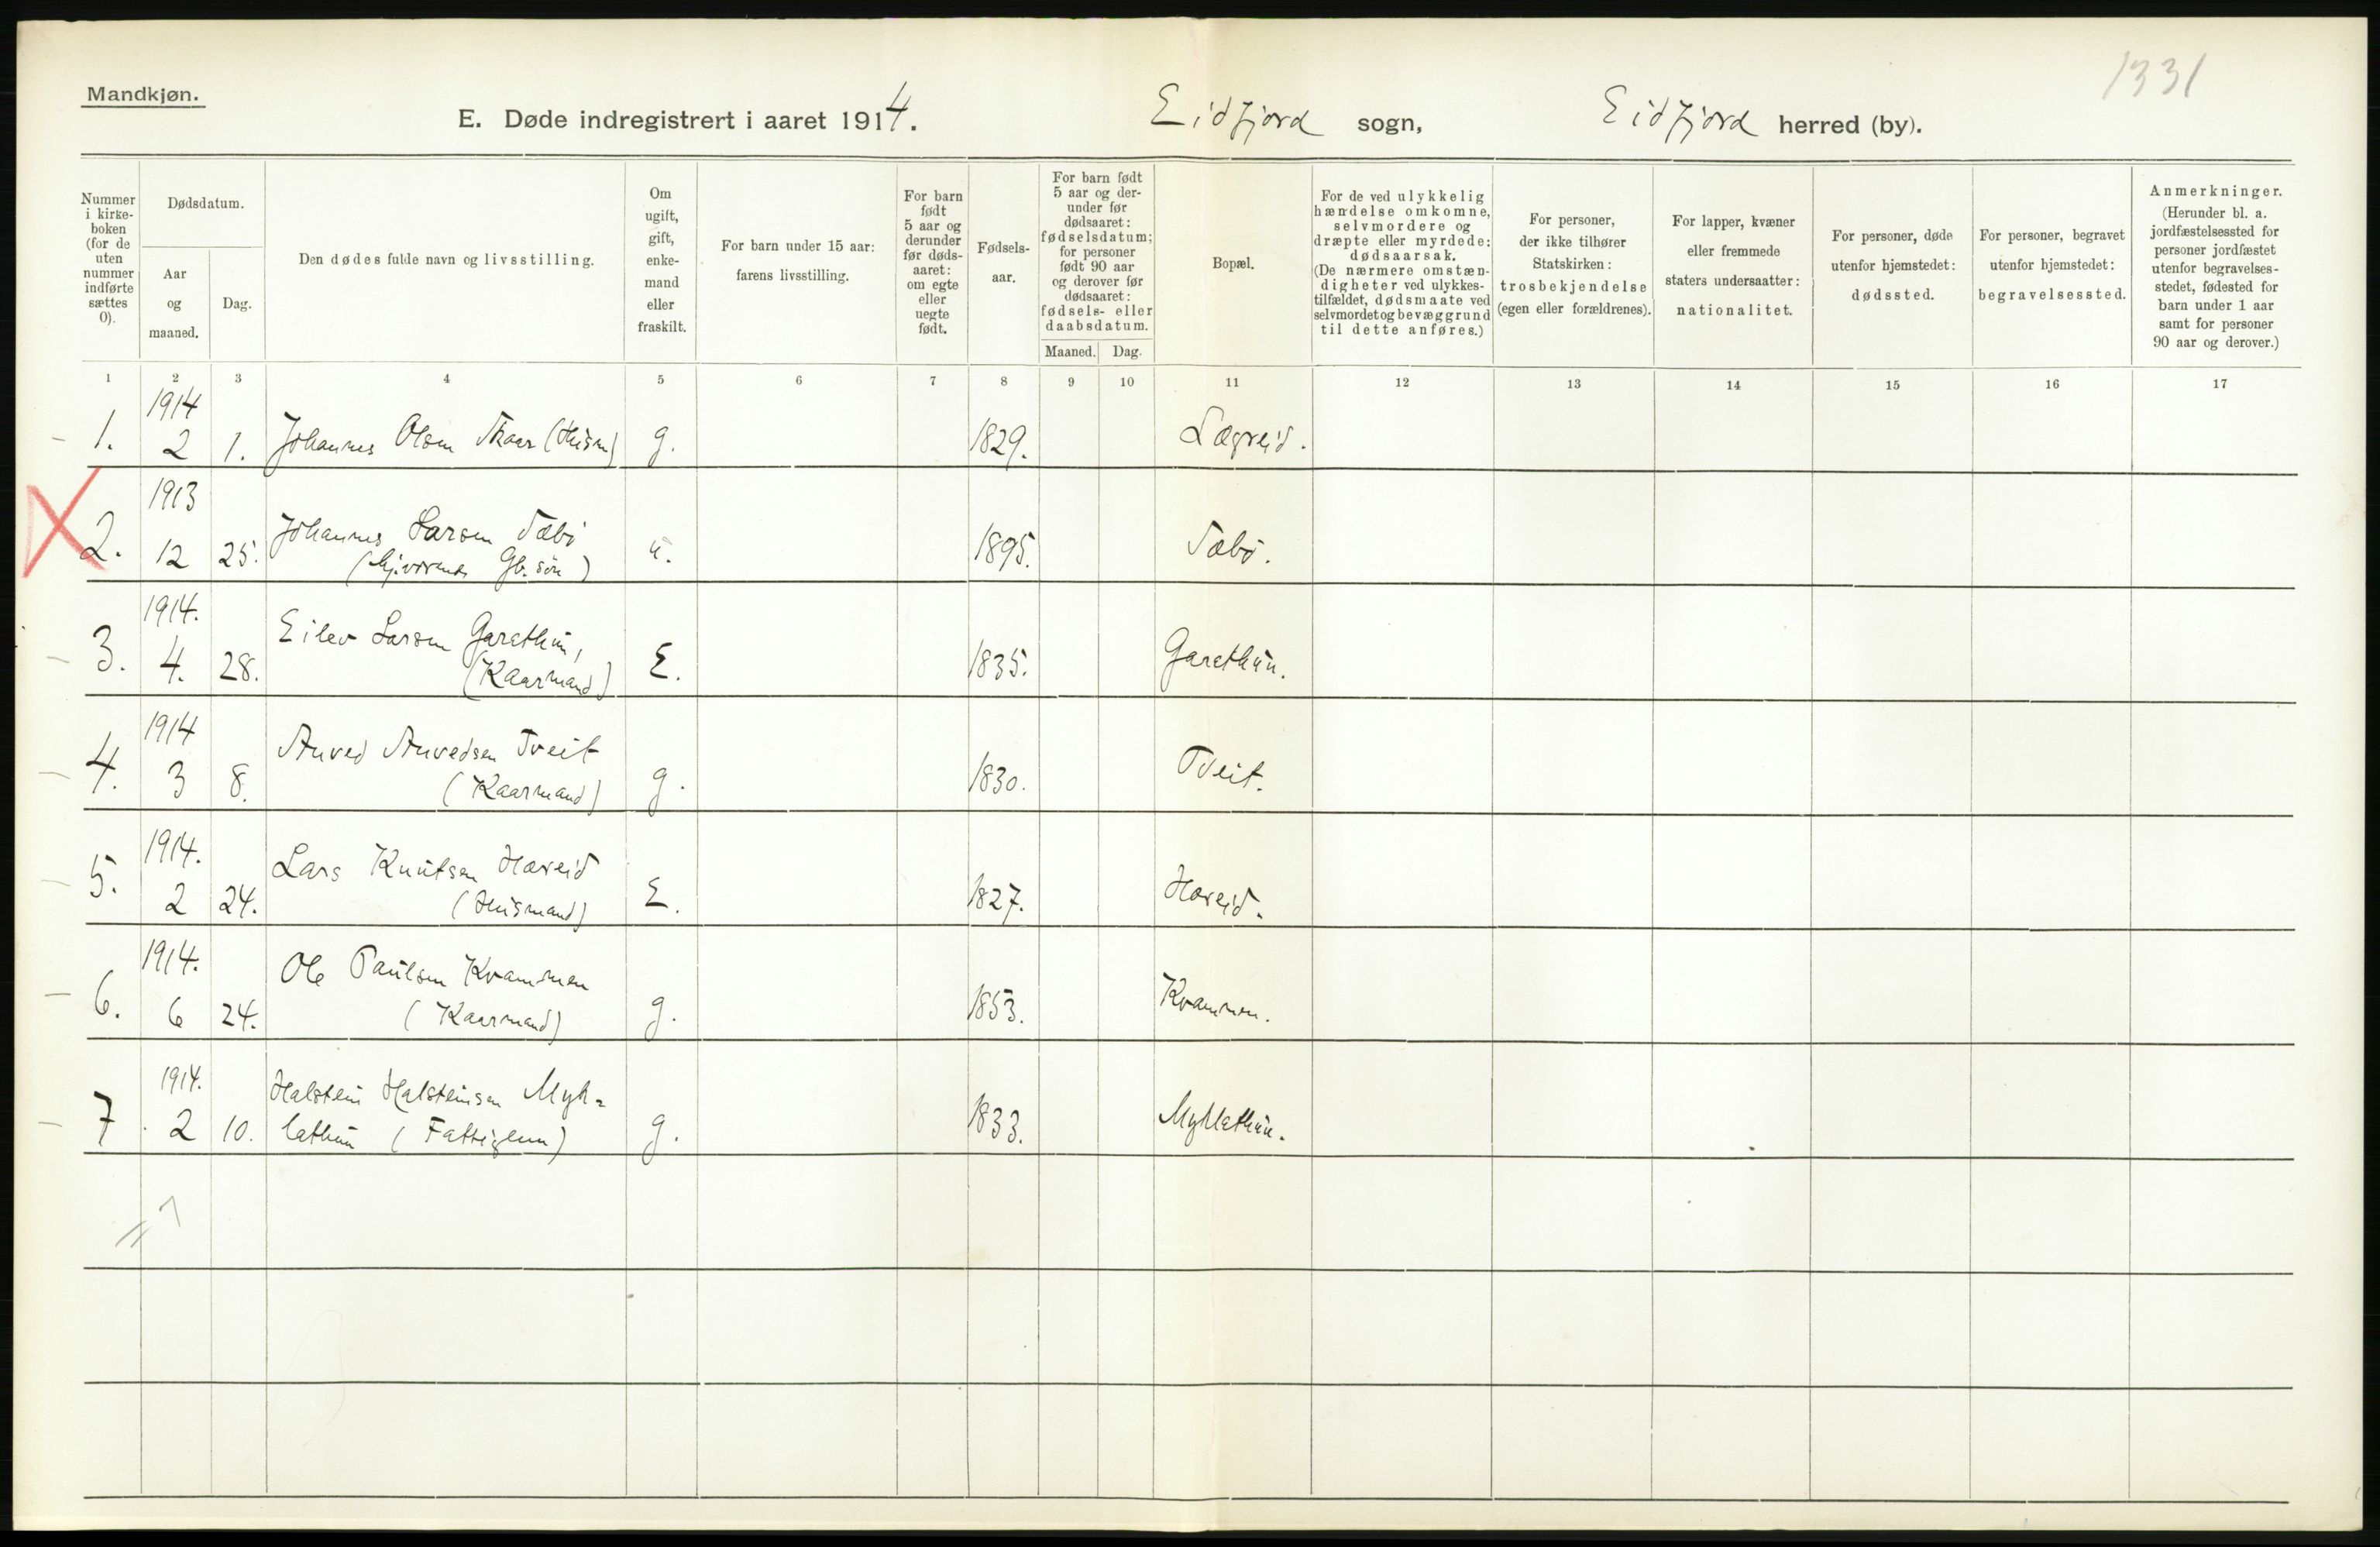 1331
Mandkjøn.
E. Døde indregistrert i aaret 1914. Eidfjord sogn, Eidfjord herred (by).
Nummer i kirke- boken (for de uten nummer indførte sættes 0).
Dødsdatum.
Aar og maaned.
Dag.
Den dødes fulde navn og livsstilling.
Om ugift, gift, enke- mand eller fraskilt.
For barn under 15 aar: farens livsstilling.
For barn født 5 aar og derunder før døds- aaret: om egte eller uegte født.
Fødsels- aar.
For barn født 5 aar og der- under før dødsaaret: fødselsdatum; for personer født 90 aar og derover før dødsaaret: fødsels- eller daabsdatum.
Maaned. Dag.
Bopæl.
For de ved ulykkelig hændelse omkomne, selvmordere og dræpte eller myrdede: dødsaarsak. (De nærmere omstæn- digheter ved ulykkes- tilfældet, dødsmaate ved selvmordet og bevæggrund til dette anføres.)
For personer, der ikke tilhører Statskirken: trosbekjendelse (egen eller forældrenes).
For lapper, kvæner eller fremmede staters undersaatter: nationalitet.
For personer, døde utenfor hjemstedet: dødssted.
For personer, begravet utenfor hjemstedet: begravelsessted.
Anmerkninger. (Herunder bl. a. jordfæstelsessted for personer jordfæstet utenfor begravelses- stedet, fødested for barn under 1 aar samt for personer 90 aar og derover.)
1 2 3 4 5 6 7 8 9 10 11 12 13 14 15 16 17
1914
1. 2 1. Johannes Olsen Skaar (Husm) g. 1829. Lægreid.
1913
2. 12 25. Johannes Larsen Sæbø u. 1895. Sæbø.
(hj.værende Gb. søn)
1914.
3. 4. 28. Eilev Larsen Garethun, E. 1835. Garethun.
(Kaarmand)
1914
4. 3 8. Anved Anvedsen Tveit g. 1830. Tveit.
(Kaarmand)
1914.
5. 2 24. Lars Knutsen Hæreid E. 1827. Hæreid.
(Husmand)
1914.
6. 6 24. Ole Paulsen Kvammen g. 1853. Kvammen.
(Kaarmand)
1914.
7 2 10. Halstein Halsteinsen Myk-
lathun (Fattiglem) g. 1833. Myklathun.
7